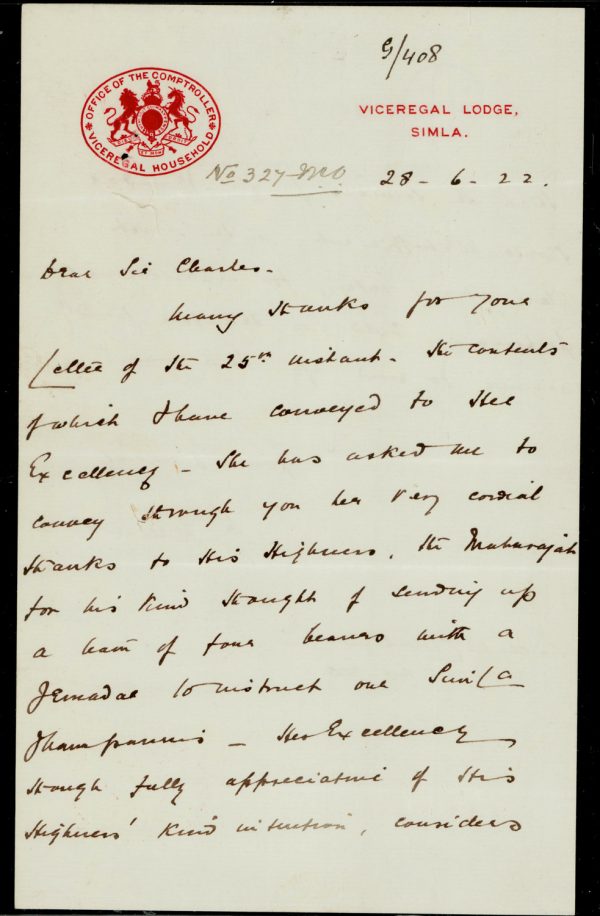 G/408
OFFICE OF THE COMPTROLLER
VICEREGAL HOUSEHOLD
VICEREGAL LODGE,
SIMLA.
No 327-MO
28 - 6 - 22.
Dear Sir Charles -
Many thanks for your
letter of the 25th instant - the contents
of which I have conveyed to Her
Excellency - She has asked me to
convey through you her very cordial
thanks to His Highness, the Maharajah
for his kind thought of sending up
a team of four bearers with a
Jemadar to instruct our Simla
Jhampannis - Her Excellency
though fully appreciative of His
Highness' kind intention, considers